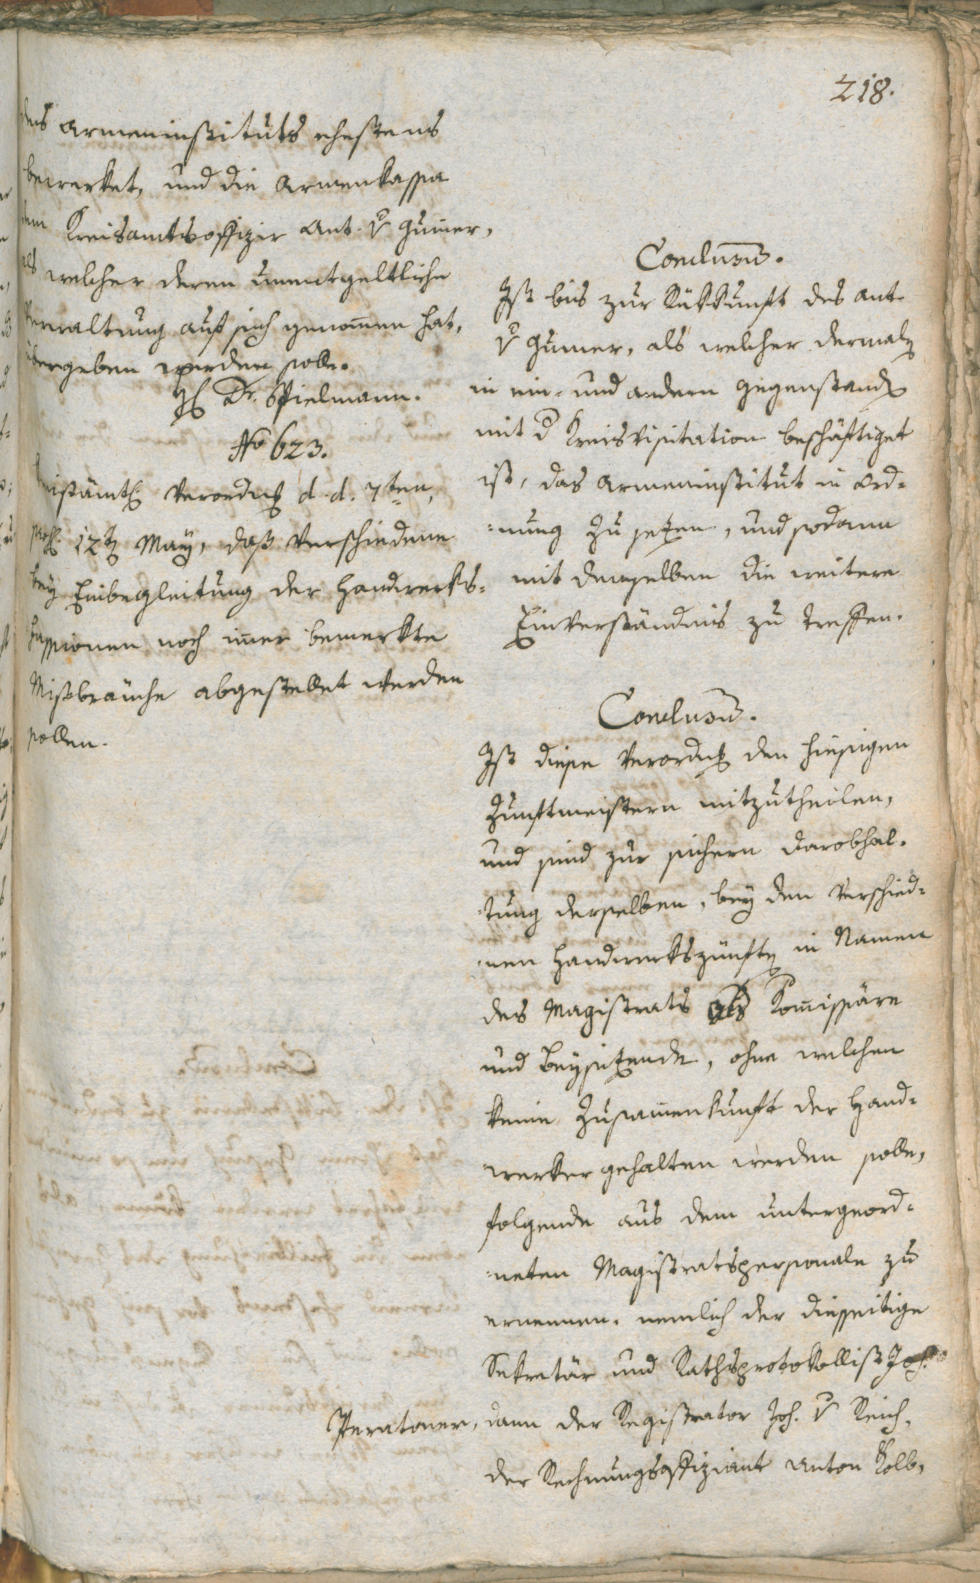 218.
des Armeninstituts ehestens
bewerket, und die Armenkassa
dem Kreisamtsoffizir Ant. v Gumer,
als welcher deren unentgeltliche
Verwaltung auf sich genom̅en hat,
übergeben werden solle.
H Dr. Spielmann.
No 623.
Kreisämtl Verordng d. d. 7ten,
pns 12tn May, daß verschiedene
bey Einbegleitung der Handwerks-
sionen noch im̅er bemerkte
Mißbräuche abgestellet werden
sollen.
Conclusum̅.
Ist bis zur Rükkunft des Ant.
v Gumer, als welcher dermaln
in ein- und andern Gegenständn
mit d Kreisvisitation beschäftiget
ist, das Armeninstitut in Ord-
-nung zu setzen, und sodann
mit demselben die weitere
Einverständnis zu treffen.
Conclusum̅.
Ist diese Verordng den hiesigen
Zunftmeistern mitzutheilen,
und sind zur sichern Darobhal-
-tung derselben, bey den verschied-
-nen Handwerkszünften in Namen
des Magistrats als Kom̅issäre
und Beysitzende, ohne welchen
keine Zusam̅enkunft der Hand-
werker gehalten werden solle,
folgende aus dem untergeord-
-neten Magistratspersonale zu
ernennen. nemlich der diesseitige
Sekretär und Rathsprotokollist Jos.
Peratoner, dann der Registrator Joh. v Reich,
der Rechnungsoffiziant Anton Kolb,